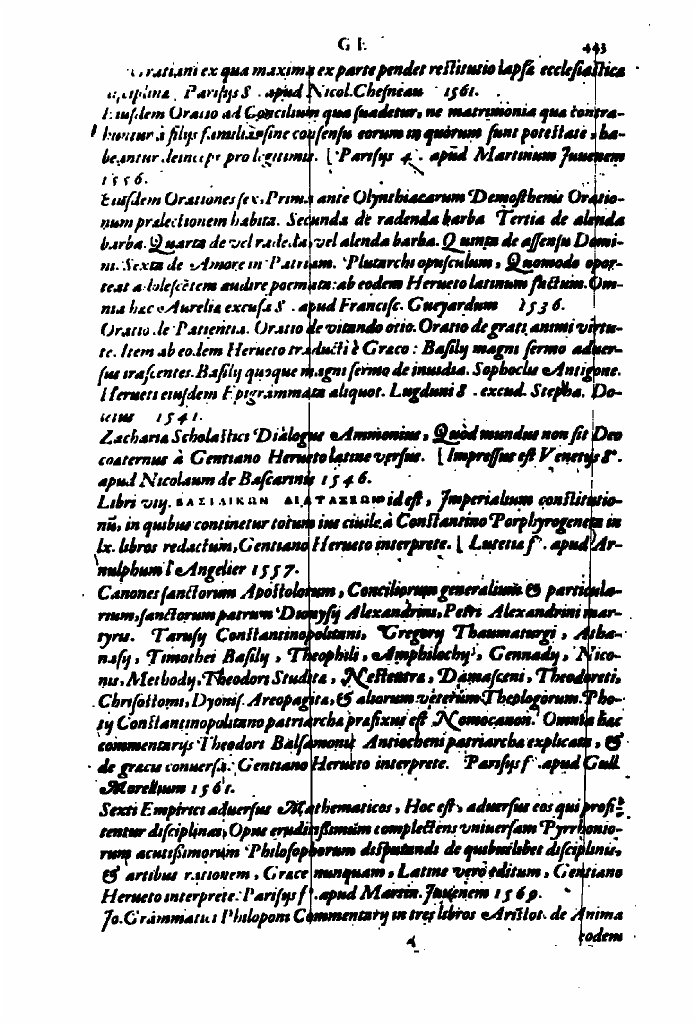 G E 443
Gratiani ex qua maxima ex parte pendet restitutio lapsæ ecclesiastica
disciplina. Parisijs 8°. apud Nicol. Chesneau 1561.
Eiusdem Oratio ad Concilium qua suadetur, ne matrimonia qua contra-
huntur à filijs familias sine consensu eorum in quorum sunt potestate, ha-
beantur deinceps pro legitimis. [Parisijs 4°. apud Martinum Juuenem
1556.
Eiusdem Orationes sex, Prima ante Olynthiacarum Demosthenis Oratio-
num pralectionem habita. Secunda de radenda barba Tertia de alenda
barba. Quarta de vel radeda, vel alenda barba. Quinta de assensu Domi-
ni. Sexta de Amore in Patriam. Plutarchi opusculum, Quomodo opor-
teat adolescētem audire poemata: ab eodem Herueto latinum factum. Om-
nia hac Aurelia excusa 8°. apud Francisc. Gueyardum 1536.
Oratio de Patientia. Oratio de vitando otio. Oratio de grati animi virtu-
te. Item ab eodem Herueto traducti è Graco: Basilij magni sermo aduer-
sus irascentes. Basilij quoque magni sermo de inuidia. Sophoclis Antigone.
Herueti eiusdem Epigrammata aliquot. Lugduni 8°. excud. Stepha. Do-
letus 1541.
Zacharia Scholastici Dialogus Ammonius, Quòd mundus non sit Deo
coaternus à Gentiano Herueto latine versus. [Impressus est Venetijs 8°.
apud Nicolaum de Bascarinis 1546.
Libri viij. ΒΑΣΙΛΙΚΩΝ ΔΙΑΤΑΞΕΩΝ id est, Imperialium constitutio-
nū, in quibus continetur totum ius ciuile à Constantino Porphyrogeneta in
lx. libros redactum, Gentiano Herueto interprete. [Lutetia f°. apud Ar-
nulphum l'Angelier 1557.
Canones sanctorum Apostolorum, Conciliorum generalium & particula-
rium, sanctorum patrum Dionysij Alexandrini, Petri Alexandrini mar-
tyris. Tarasij Constantinopolitani, Gregorij Thaumaturgi, Atha-
nasij, Timothei Basilij, Theophili, Amphilochij, Gennadij, Nico-
nis, Methodij, Theodori Studita, Nesteutra, Damasceni, Theodoreti,
Chrisostomi, Dyonis. Areopagita, & aliorum veterum Theologorum. Pho-
tij Constantinopolitano patriarcha prefixus est Nomocanon. Omnia hac
commentarijs Theodori Balsamonis Antiocheni patriarcha explicata, &
de gracis conuersa: Gentiano Herueto interprete. Parisijs f°. apud Guil.
Morellium 1561.
Sexti Empirici aduersus Mathematicos, Hoc est, aduersus eos qui profi-
tentur disciplinas, Opus eruditissimum complectens vniuersam Pyrrhonio-
rum acutissimorum Philosophorum disputandi de quibuslibet disciplinis,
& artibus rationem, Grace nunquam, Latine verò editum, Gentiano
Herueto interprete. Parisijs f°. apud Martin. Juuenem 1569.
Jo. Grammatici Philoponi Commentarij in tres libros Aristot. de Anima
eodem